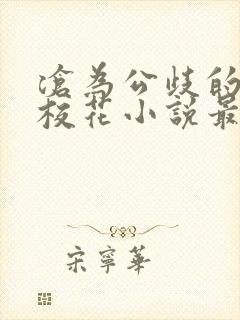 淪為公歧的
校花小說最
宋寧華